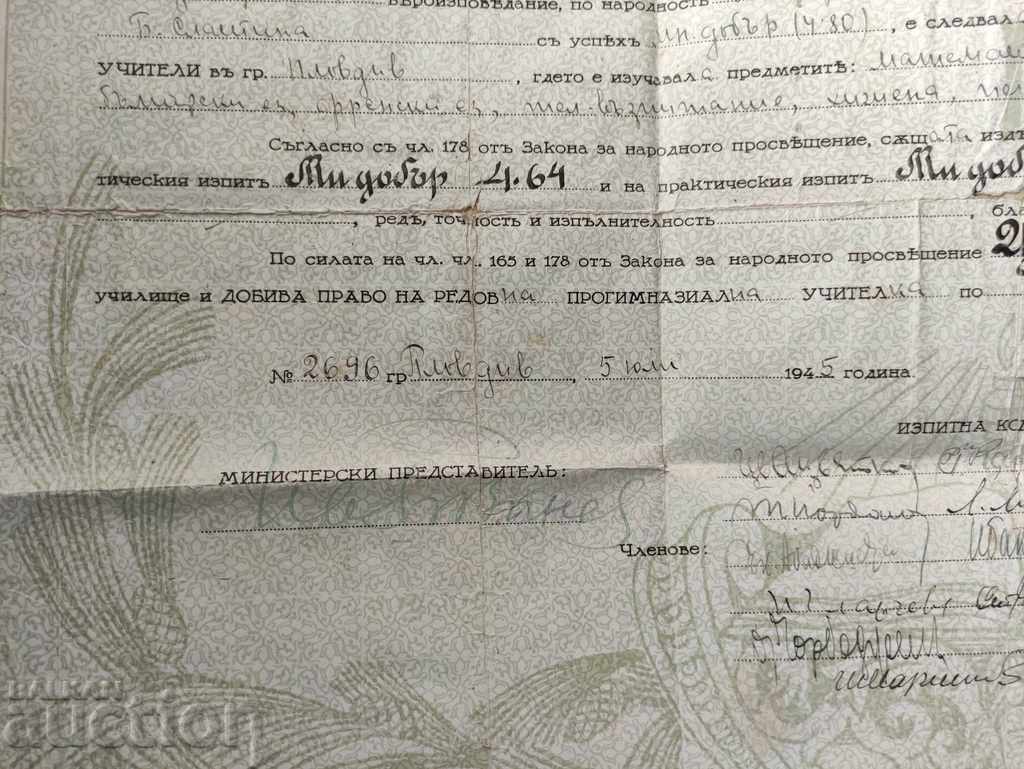 вѣроизповѣдание, по народность
Б. Слатина съ успѣхъ мн добър (4.80), е следвал
УЧИТЕЛИ въ гр. Пловдив, гдето е изучавала предметитѣ: математ
български ез, френски ез, тел. възпитание, хигиена, пе
Съгласно съ чл. 178 отъ Закона за народното просвѣщение, сѫщата изд
тическия изпитъ Мн добър 4.64 и на практическия изпитъ Мн доб
, редъ, точность и изпълнителность , бл
По силата на чл. чл. 165 и 178 отъ Закона за народното просвѣщение
училище и ДОБИВА ПРАВО НА РЕДОВНА ПРОГИМНАЗИАЛНА УЧИТЕЛКА по
№ 2696 гр. Пловдив, 5 юли 1945 година.
ИЗПИТНА КО
МИНИСТЕРСКИ ПРЕДСТАВИТЕЛЬ:
Членове:
BALKAN
auction